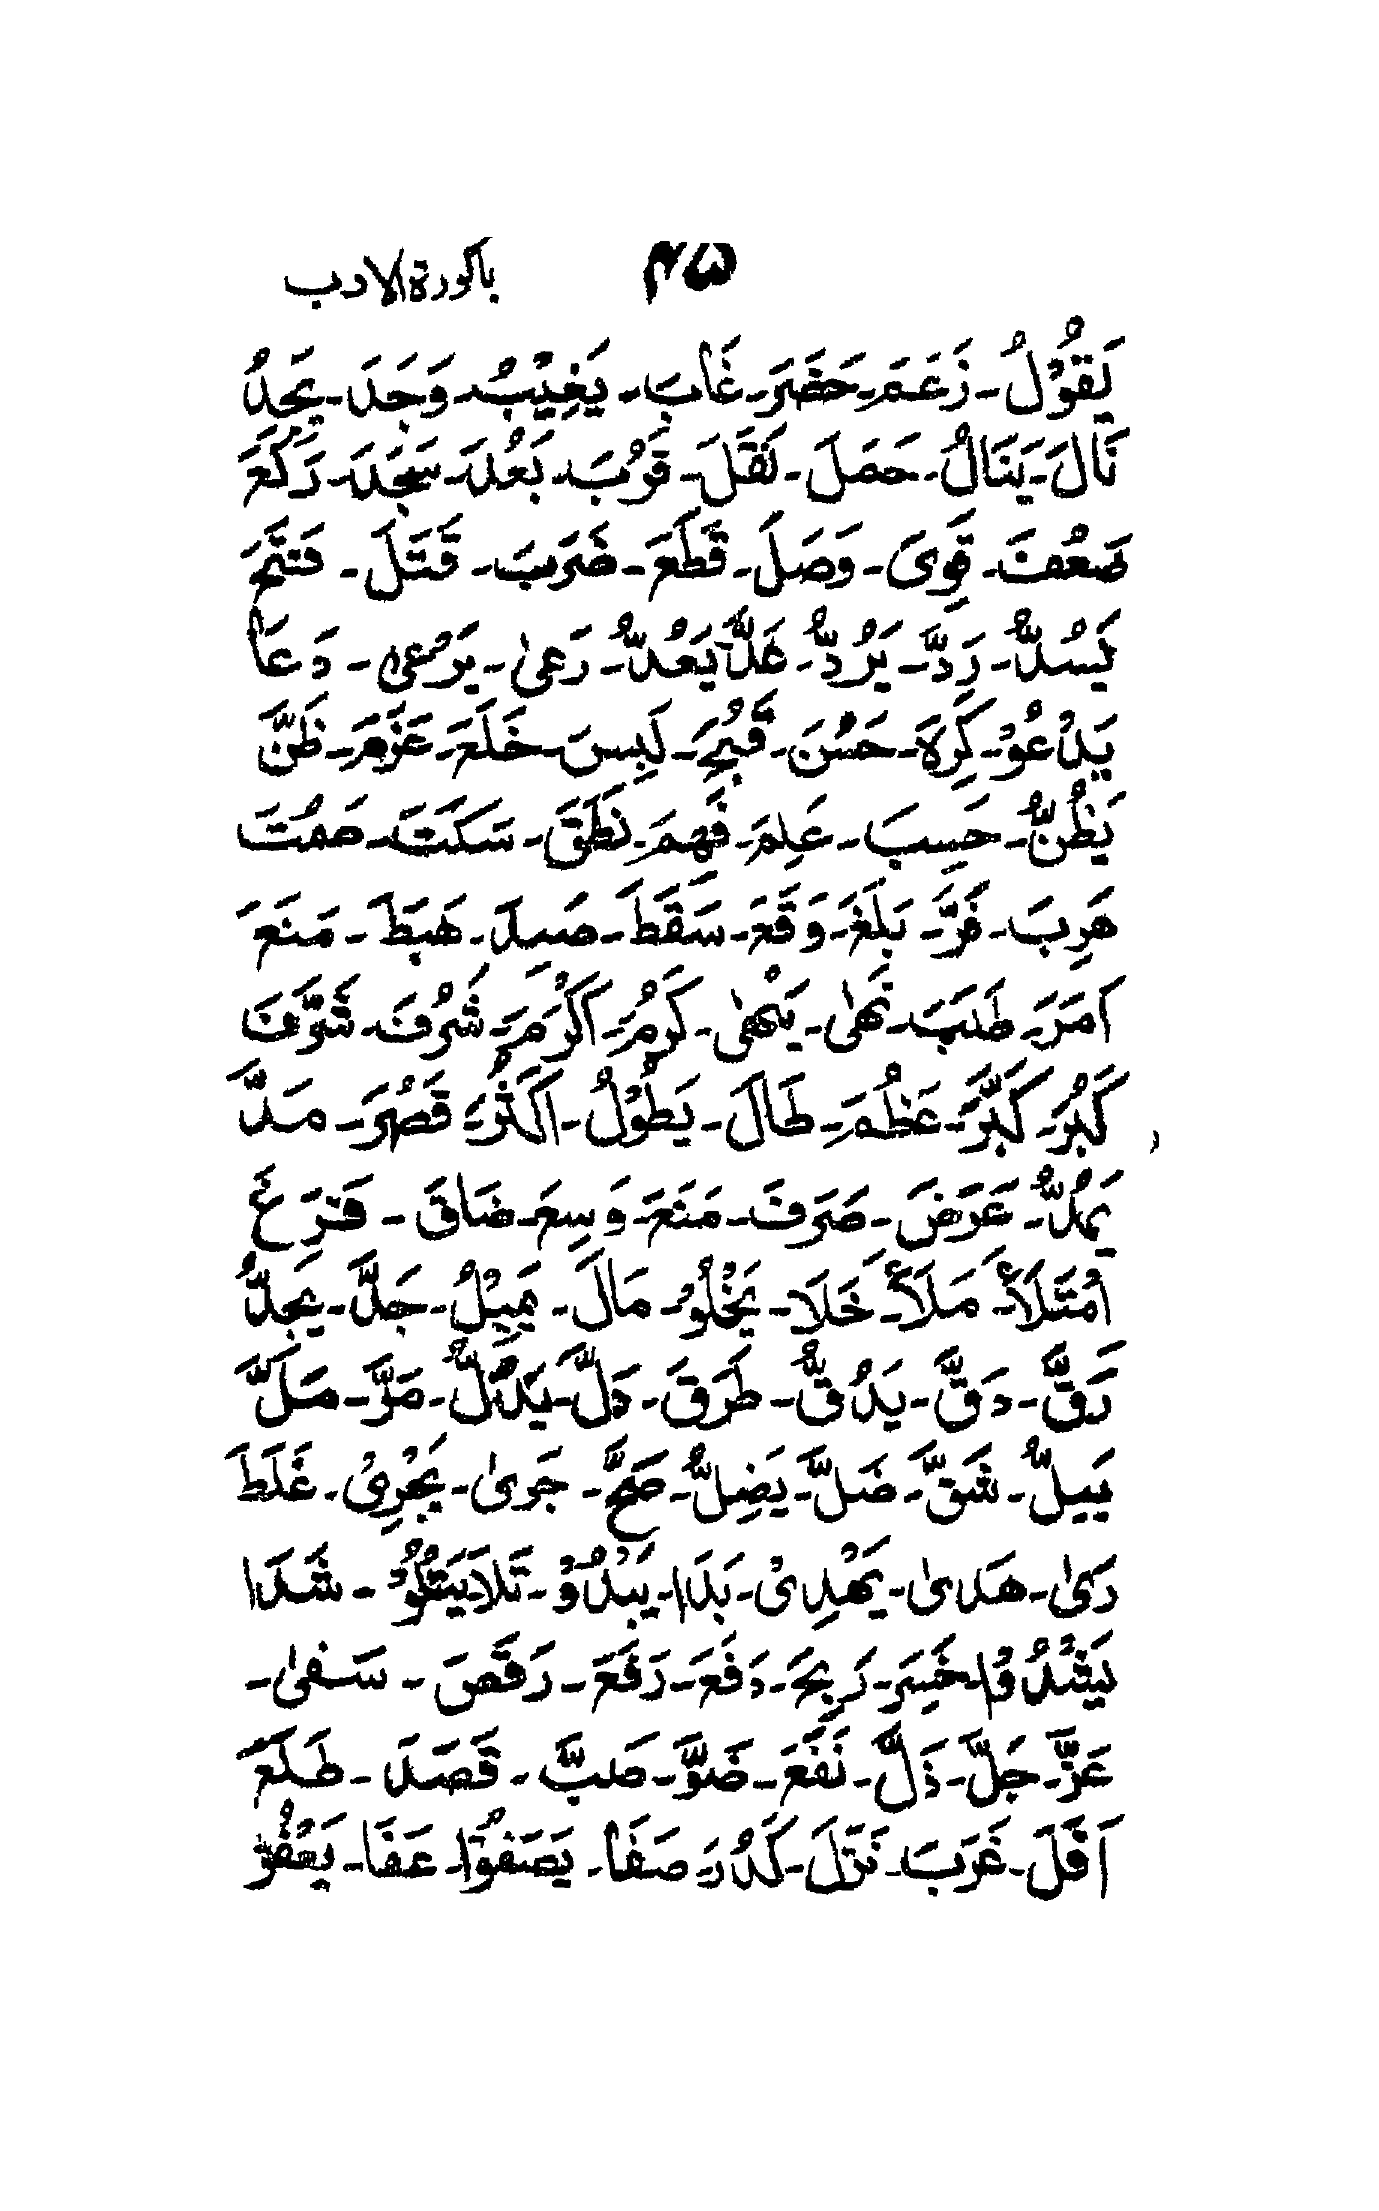 باكورة الادب ۴۵
يَقُوْلُ - زَعَمَ - حَضَرَ - غَابَ - يَغِيْبُ - وَجَدَ - يَجِدُ
نَالَ - يَنَالُ - حَمَلَ - نَقَلَ - قَرُبَ - بَعُدَ - سَجَدَ - رَكَعَ
ضَعُفَ - قَوِیَ - وَصَلَ - قَطَعَ - ضَرَبَ - قَتَلَ - فَتَحَ
يَسُدُّ - رَدَّ - يَرُدُّ - عَدَّ يَعُدُّ - رَعیٰ - يَرْعیٰ - دَعَا
يَدْعُوْ - كَرِهَ - حَسُنَ - قَبُحَ - لَبِسَ - خَلَعَ - عَزَمَ - ظَنَّ
يَظُنُّ - حَسِبَ - عَلِمَ - فَهِمَ - نَطَقَ - سَكَتَ - صَمُتَ
هَرِبَ - فَرَّ - بَلَغَ - وَقَعَ - سَقَطَ - صَعِدَ - هَبَطَ - مَنَعَ
اَمَرَ - طَلَبَ - نَهٰی - يَنْهٰی - كَرُمَ - اَكْرَمَ - شَرُفَ - شَرَّفَ
كَبُرَ - كَبَّرَ - عَظُمَ - طَالَ - يَطُوْلُ - اَكْثَرَ - قَصُرَ - مَدَّ
يَمُدُّ - عَرَضَ - صَرَفَ - مَنَعَ - وَسِعَ - ضَاقَ - فَرِغَ
اِمْتَلَأَ - مَلَأَ - خَلَا - يَخْلُوْ - مَالَ - يَمِيْلُ - جَلَّ - يَجِلُّ
رَقَّ - دَقَّ - يَدُقُّ - طَرَقَ - دَلَّ - يَدُلُّ - مَرَّ - مَلَّ
يَمِلُّ - شَقَّ - ضَلَّ - يَضِلُّ - صَحَّ - جَریٰ - يَجْرِیْ - غَلَطَ
رَمیٰ - هَدیٰ - يَهْدِیْ - بَدَا - يَبْدُوْ - تَلَا يَتْلُوْ - شَدَا
يَشْدُوْا - خَسِرَ - رَبِحَ - دَفَعَ - رَفَعَ - رَقَصَ - سَفیٰ -
عَزَّ - جَلَّ - ذَلَّ - نَفَعَ - ضَرَّ - صَبَّ - قَصَدَ - طَلَعَ
اَفَلَ - غَرَبَ - نَزَلَ - كَدُرَ - صَفَا - يَصْفُوْا - عَفَا - يَعْفُوْ